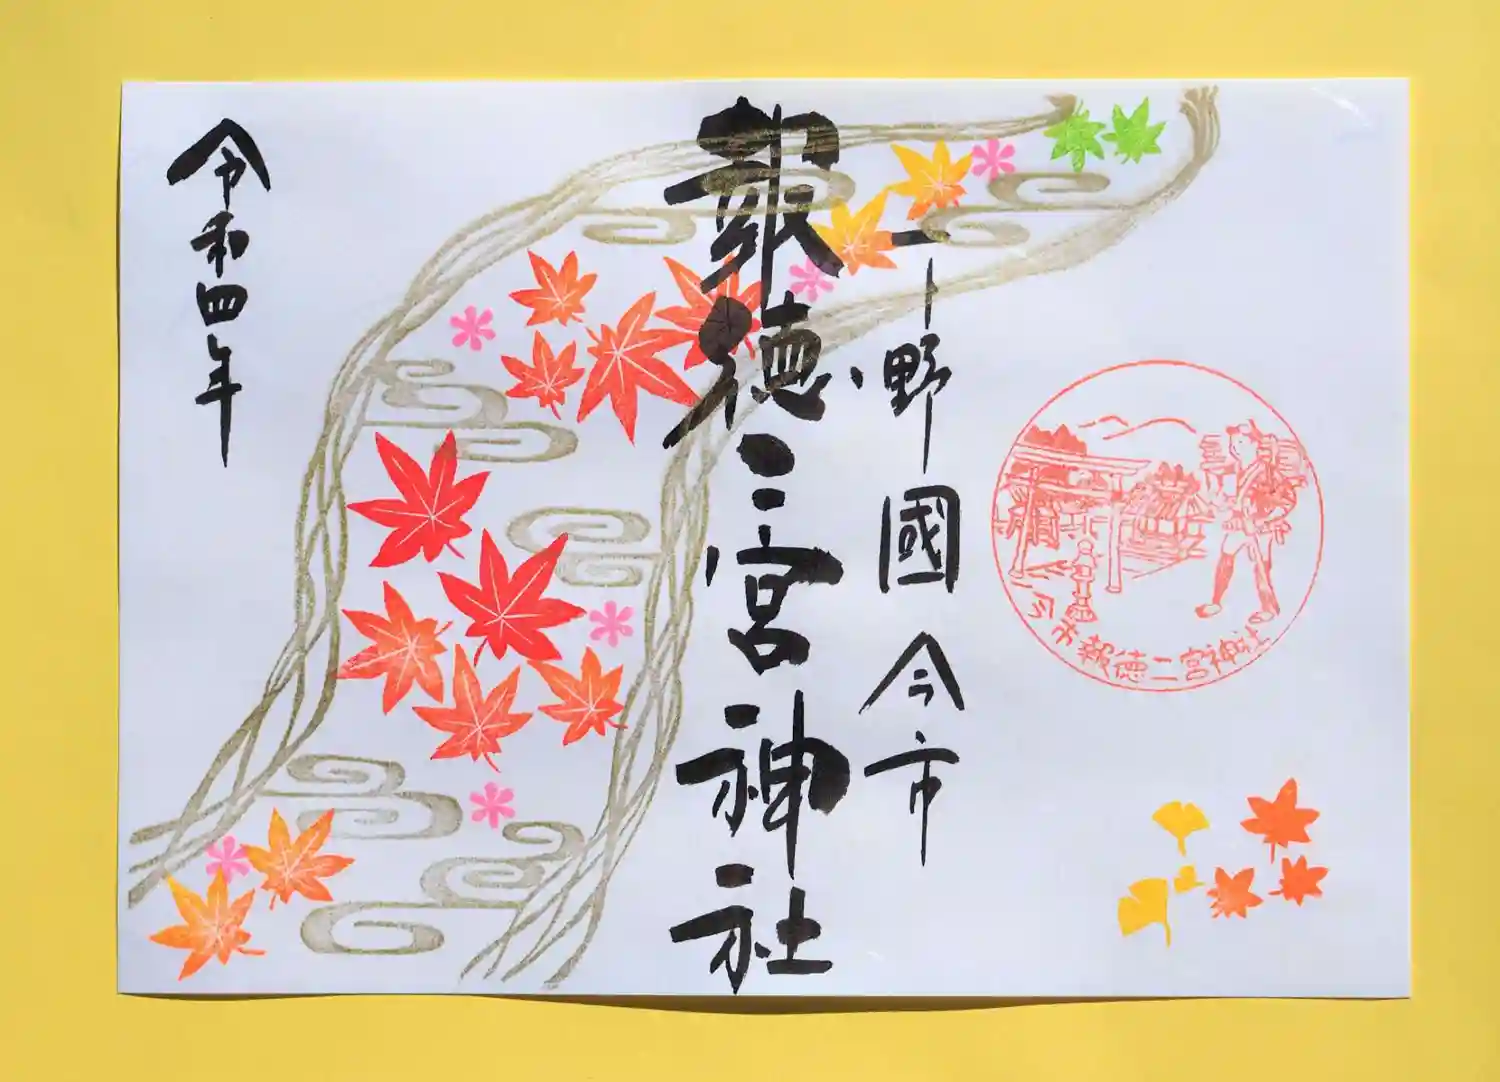 下野國今市
報徳二宮神社
令和四年
今市報徳二宮神社